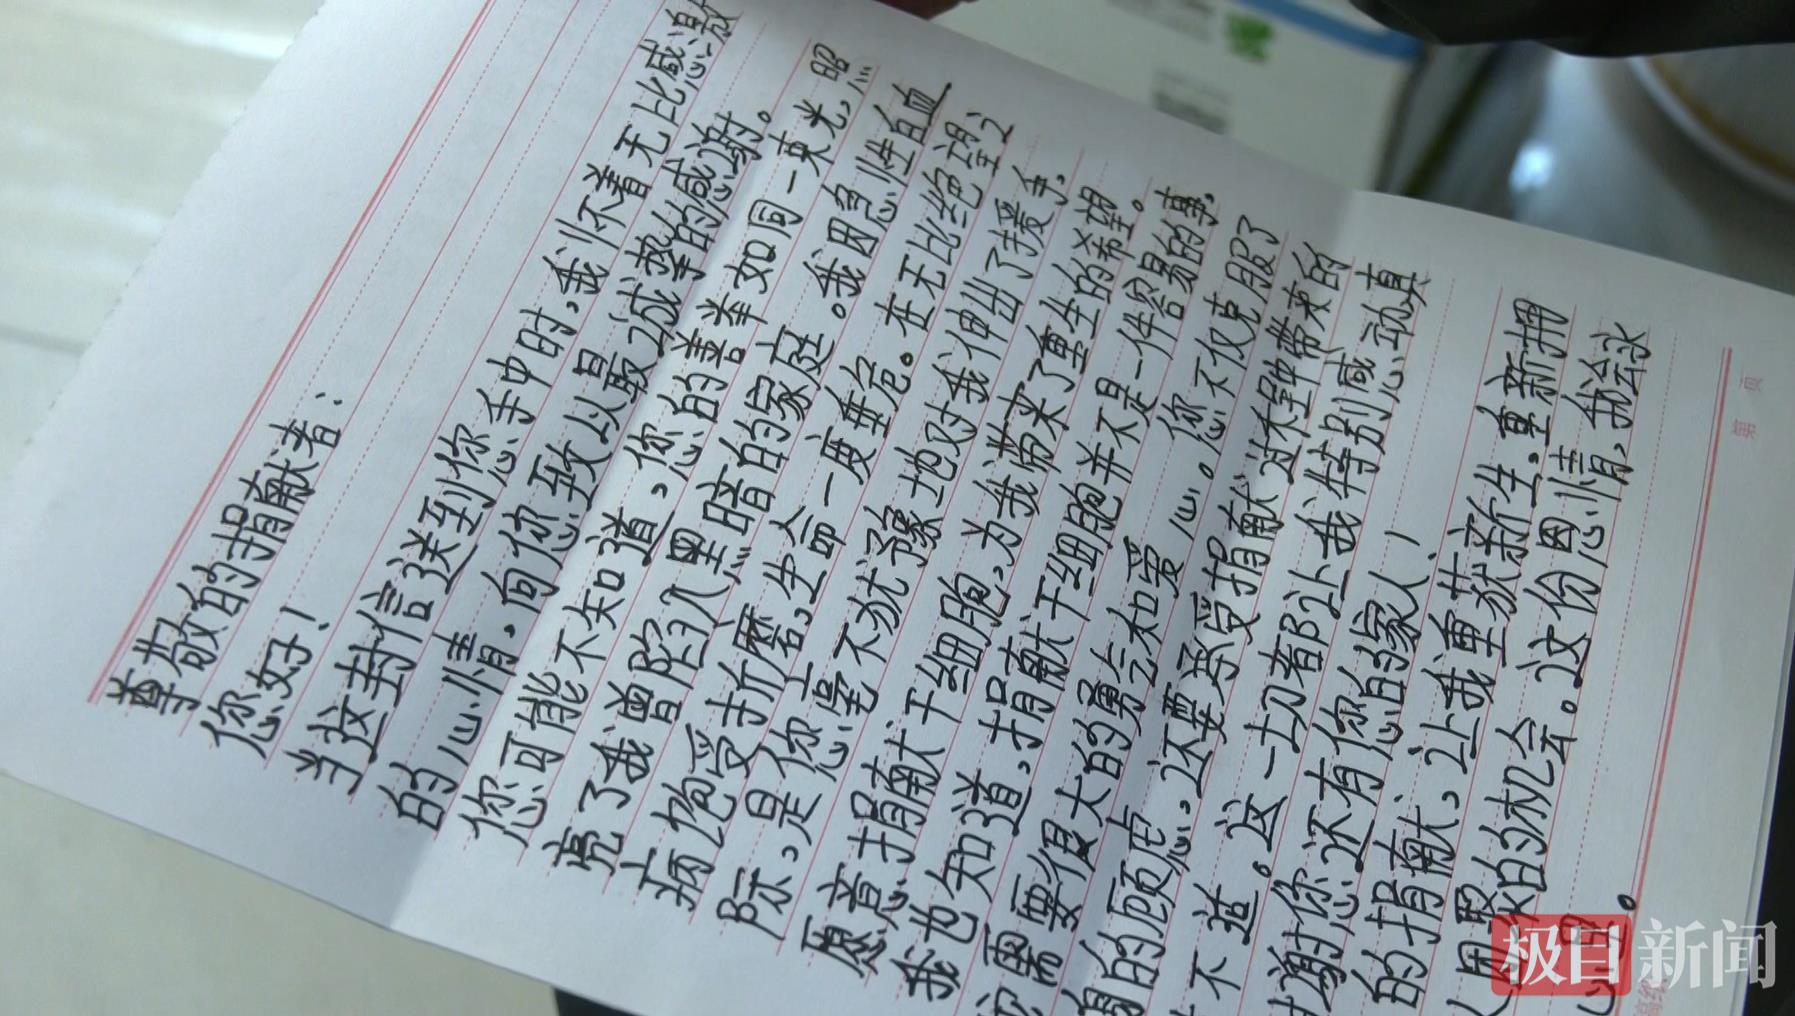 尊敬的捐献者：
您好！
当这封信送到您手中时，我怀着无比感激
的心情，向您致以最诚挚的感谢。
您可能不知道，您的善举如同一束光，照
亮了我曾陷入黑暗的家庭。我因急性白血
病饱受折磨，生命一度垂危。在无比绝望之
际，是您毫不犹豫地对我伸出了援手，
愿意捐献干细胞，为我带来了重生的希望。
我也知道，捐献干细胞并不是一件容易的事，
需要很大的勇气和爱心。您不仅克服了
的顾虑，还要承受捐献过程中带来的
不适。这一切都让我特别感动真
谢您还有您的家人！
的捐献，让我重获新生，重新拥
的机会。这份恩情，我会永
心
第 页
极目新闻